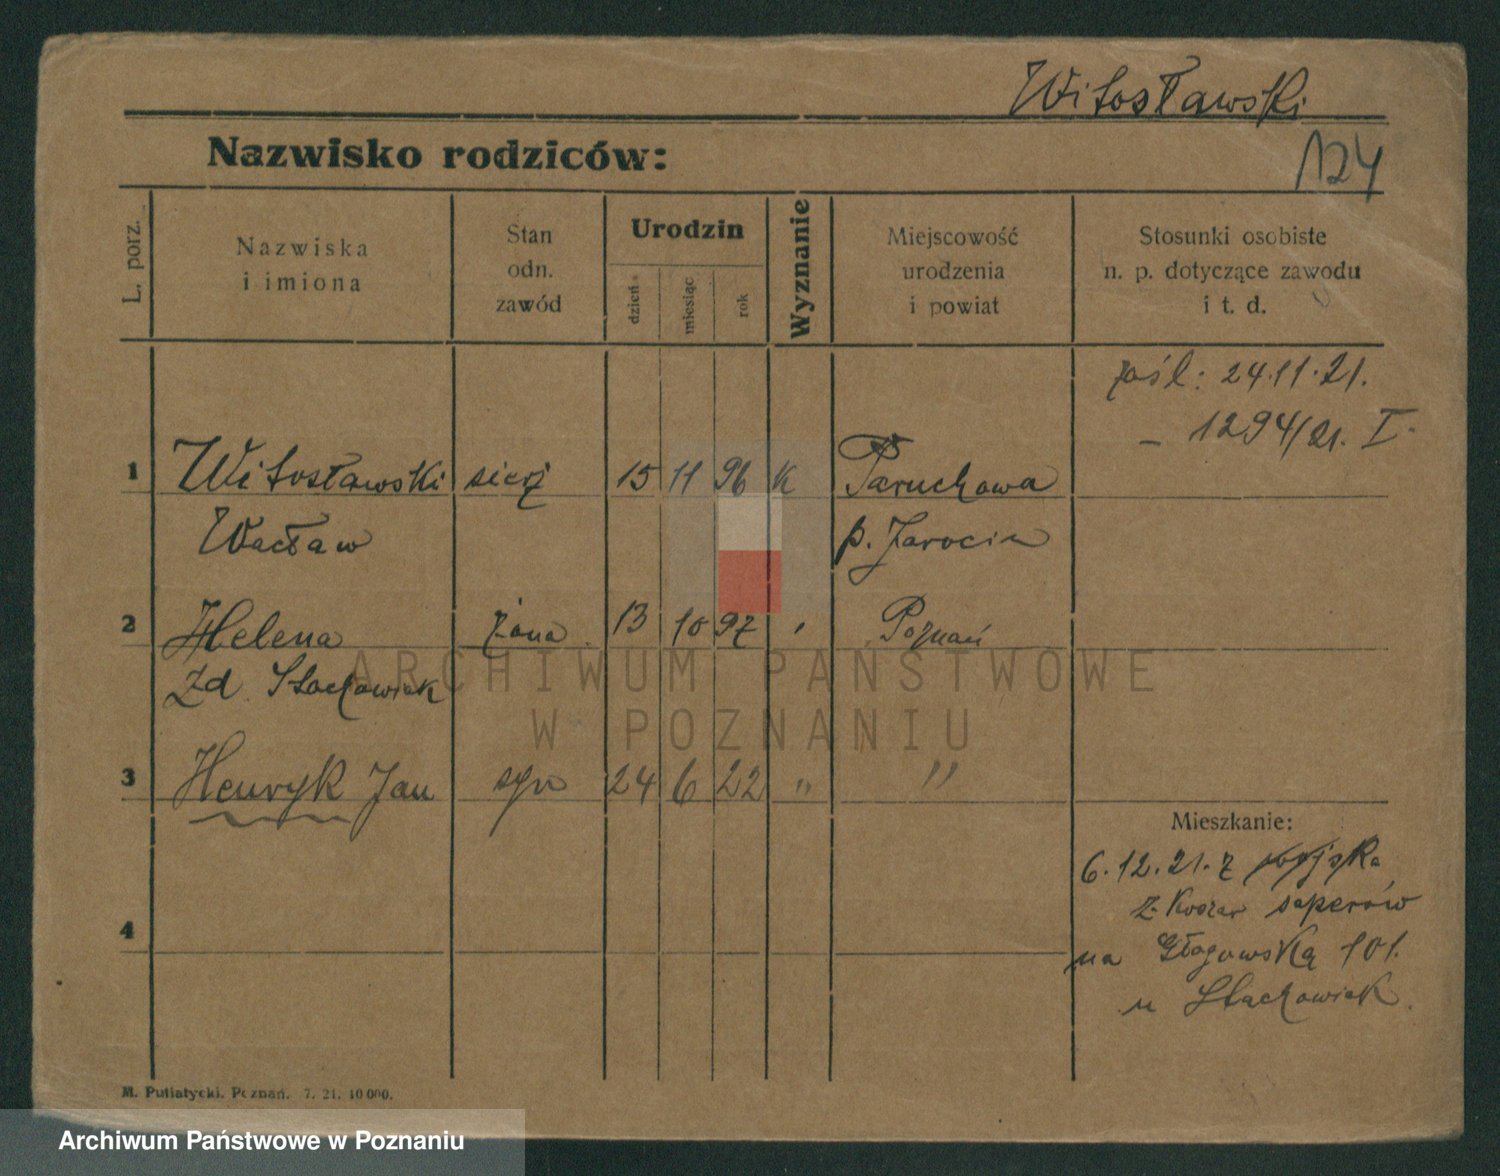 Witosławski
Nazwisko rodziców:
124
L. porz.
Nazwiska
i imiona
Stan
odn.
zawód
Urodzin
dzień
miesiąc
rok
Wyznanie
Miejscowość
urodzenia
i powiat
Stosunki osobiste
n. p. dotyczące zawodu
i t. d.
zaśl: 24.11.21.
– 1294/21. I.
1 Witosławski sierż 15 11 96 k Paruchowa
Wacław p. Jarocin
2 Helena żona 13 10 97 , Poznań
Zd. Stachowiak
3 Henryk Jan syn 24 6 22 " "
Mieszkanie:
6.12.21. z
z Koszar saperów
na Głogowską 101.
u Stachowiak.
4
M. Putiatycki. Poznań. 7. 21. 10 000.
ARCHIWUM PAŃSTWOWE
W POZNANIU
Archiwum Państwowe w Poznaniu